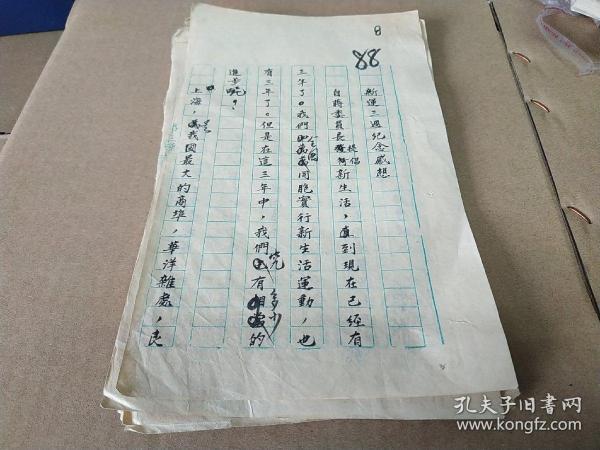 8
88
新運三週紀念感想
自蔣委員長提倡新生活,直到現在已經有
三年了。我們全國同胞實行新生活運動,也
有三年了。但是在這三年中,我們究有多少的
進步呢?
上海,是我國最大的商埠,華洋雜處,良
孔夫子旧书网
www.kongfz.com